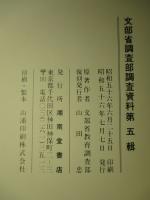 文部省調査部調査資料第五輯
昭和五十六年六月二十五日 印刷
昭和五十六年七月七日 発行
原著作者 文部省教育調査部
復刻発行者 山田忠
発行所 湘南堂書店
東京都千代田区神田神保町二ノ三
印刷・製本 山浦印刷株式会社